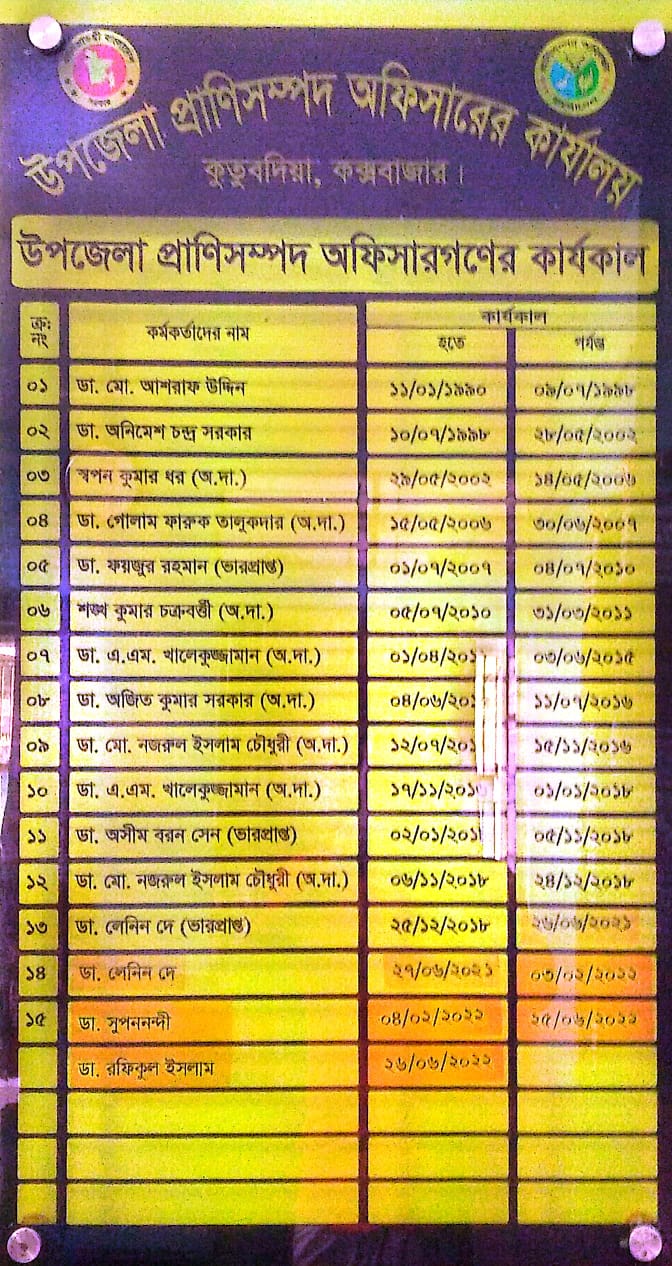 উপজেলা প্রাণিসম্পদ অফিসারের কার্যালয়
কুতুবদিয়া, কক্সবাজার।
উপজেলা প্রাণিসম্পদ অফিসারগণের কার্যকাল
ক্র: নং কর্মকর্তাদের নাম কার্যকাল
হতে পর্যন্ত
০১ ডা. মো. আশরাফ উদ্দিন ১১/০১/১৯৯০ ০৯/০৭/১৯৯৮
০২ ডা. অনিমেশ চন্দ্র সরকার ১০/০৭/১৯৯৮ ২৮/০৫/২০০২
০৩ স্বপন কুমার ধর (অ.দা.) ২৯/০৫/২০০২ ১৪/০৫/২০০৬
০৪ ডা. গোলাম ফারুক তালুকদার (অ.দা.) ১৫/০৫/২০০৬ ৩০/০৬/২০০৭
০৫ ডা. ফয়জুর রহমান (ভারপ্রাপ্ত) ০১/০৭/২০০৭ ০৪/০৭/২০১০
০৬ শঙ্খ কুমার চক্রবর্ত্তী (অ.দা.) ০৫/০৭/২০১০ ৩১/০৩/২০১১
০৭ ডা. এ.এম. খালেকুজ্জামান (অ.দা.) ০১/০৪/২০১ ০৩/০৬/২০১৫
০৮ ডা. অজিত কুমার সরকার (অ.দা.) ০৪/০৬/২০১ ১১/০৭/২০১৬
০৯ ডা. মো. নজরুল ইসলাম চৌধুরী (অ.দা.) ১২/০৭/২০১ ১৫/১১/২০১৬
১০ ডা. এ.এম. খালেকুজ্জামান (অ.দা.) ১৭/১১/২০১৬ ০১/০১/২০১৮
১১ ডা. অসীম বরন সেন (ভারপ্রাপ্ত) ০২/০১/২০১ ০৫/১১/২০১৮
১২ ডা. মো. নজরুল ইসলাম চৌধুরী (অ.দা.) ০৬/১১/২০১৮ ২৪/১২/২০১৮
১৩ ডা. লেনিন দে (ভারপ্রাপ্ত) ২৫/১২/২০১৮ ২৬/০৬/২০২১
১৪ ডা. লেনিন দে ২৭/০৬/২০২১ ০৩/০২/২০২২
১৫ ডা. সুপননন্দী ০৪/০২/২০২২ ২৫/০৬/২০২২
ডা. রফিকুল ইসলাম ২৬/০৬/২০২২